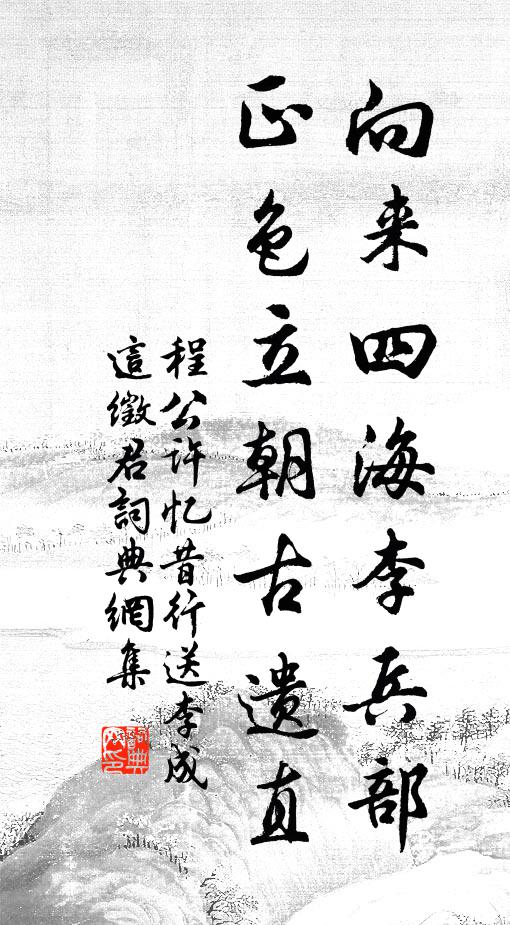 向来四海李兵部
正色立朝古遗直
程公许忆昔行送李成
這徵君詞典網集